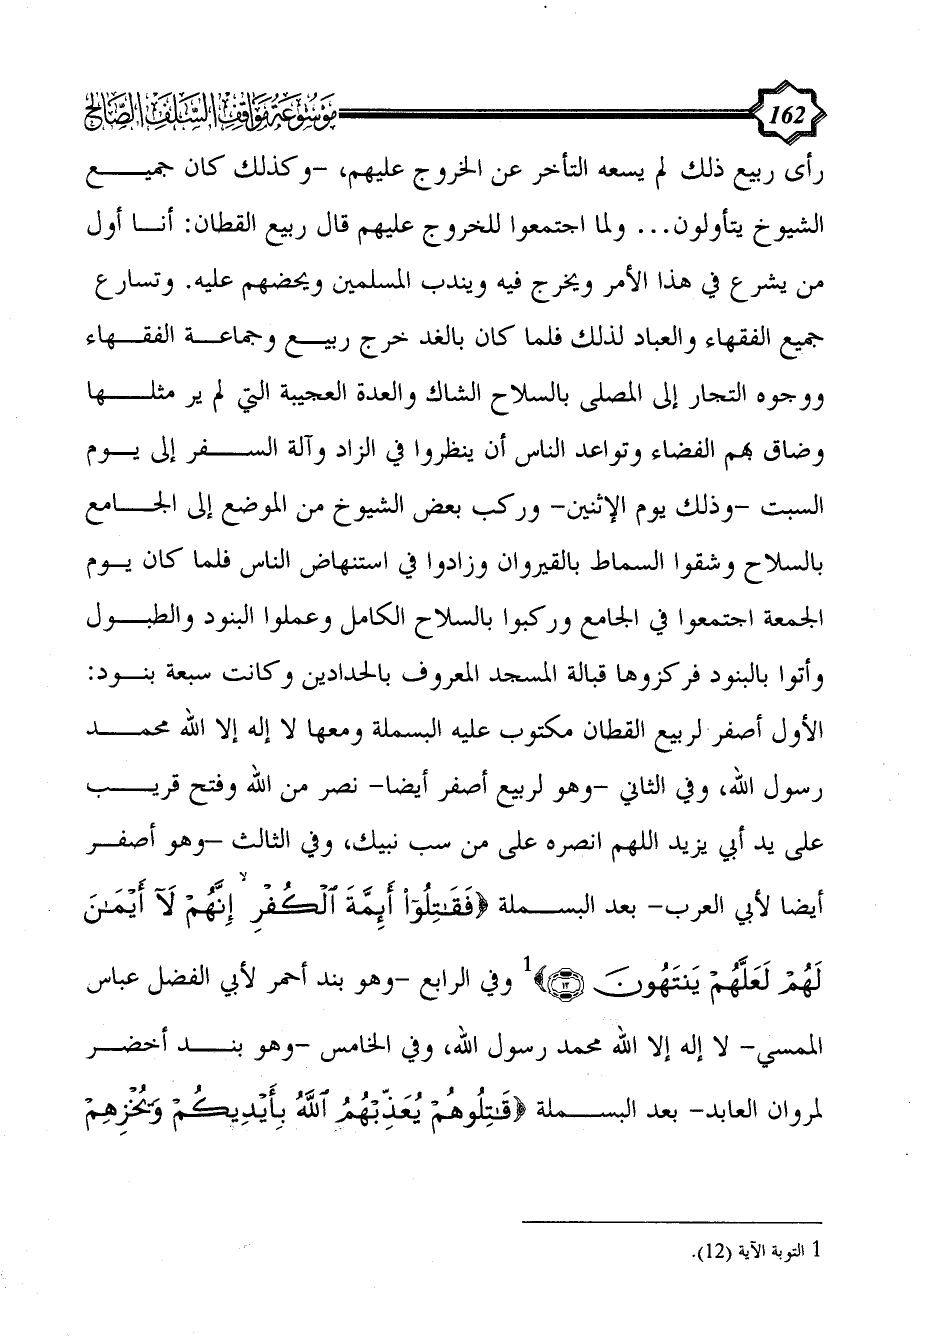 162 موسوعة مواقف السلف الصالح
رأى ربيع ذلك لم يسعه التأخر عن الخروج عليهم، -وكذلك كان جميع
الشيوخ يتأولون... ولما اجتمعوا للخروج عليهم قال ربيع القطان: أنا أول
من يشرع في هذا الأمر ويخرج فيه ويندب المسلمين ويحضهم عليه. وتسارع
جميع الفقهاء والعباد لذلك فلما كان بالغد خرج ربيع وجماعة الفقهاء
ووجوه التجار إلى المصلى بالسلاح الشاك والعدة العجيبة التي لم ير مثلها
وضاق بهم الفضاء وتواعد الناس أن ينظروا في الزاد وآلة السفر إلى يوم
السبت -وذلك يوم الإثنين- وركب بعض الشيوخ من الموضع إلى الجامع
بالسلاح وشقوا السماط بالقيروان وزادوا في استنهاض الناس فلما كان يوم
الجمعة اجتمعوا في الجامع وركبوا بالسلاح الكامل وعملوا البنود والطبول
وأتوا بالبنود فركزوها قبالة المسجد المعروف بالحدادين وكانت سبعة بنود:
الأول أصفر لربيع القطان مكتوب عليه البسملة ومعها لا إله إلا الله محمد
رسول الله، وفي الثاني -وهو لربيع أصفر أيضا- نصر من الله وفتح قريب
على يد أبي يزيد اللهم انصره على من سب نبيك، وفي الثالث -وهو أصفر
أيضا لأبي العرب- بعد البسملة ﴿فَقَٰتِلُوٓا۟ أَئِمَّةَ ٱلْكُفْرِ ۙ إِنَّهُمْ لَآ أَيْمَٰنَ
لَهُمْ لَعَلَّهُمْ يَنتَهُونَ ۝١٢﴾1 وفي الرابع -وهو بند أحمر لأبي الفضل عباس
الممسي- لا إله إلا الله محمد رسول الله، وفي الخامس -وهو بند أخضر
لمروان العابد- بعد البسملة ﴿قَٰتِلُوهُمْ يُعَذِّبْهُمُ ٱللَّهُ بِأَيْدِيكُمْ وَيُخْزِهِمْ
1 التوبة الآية (12).